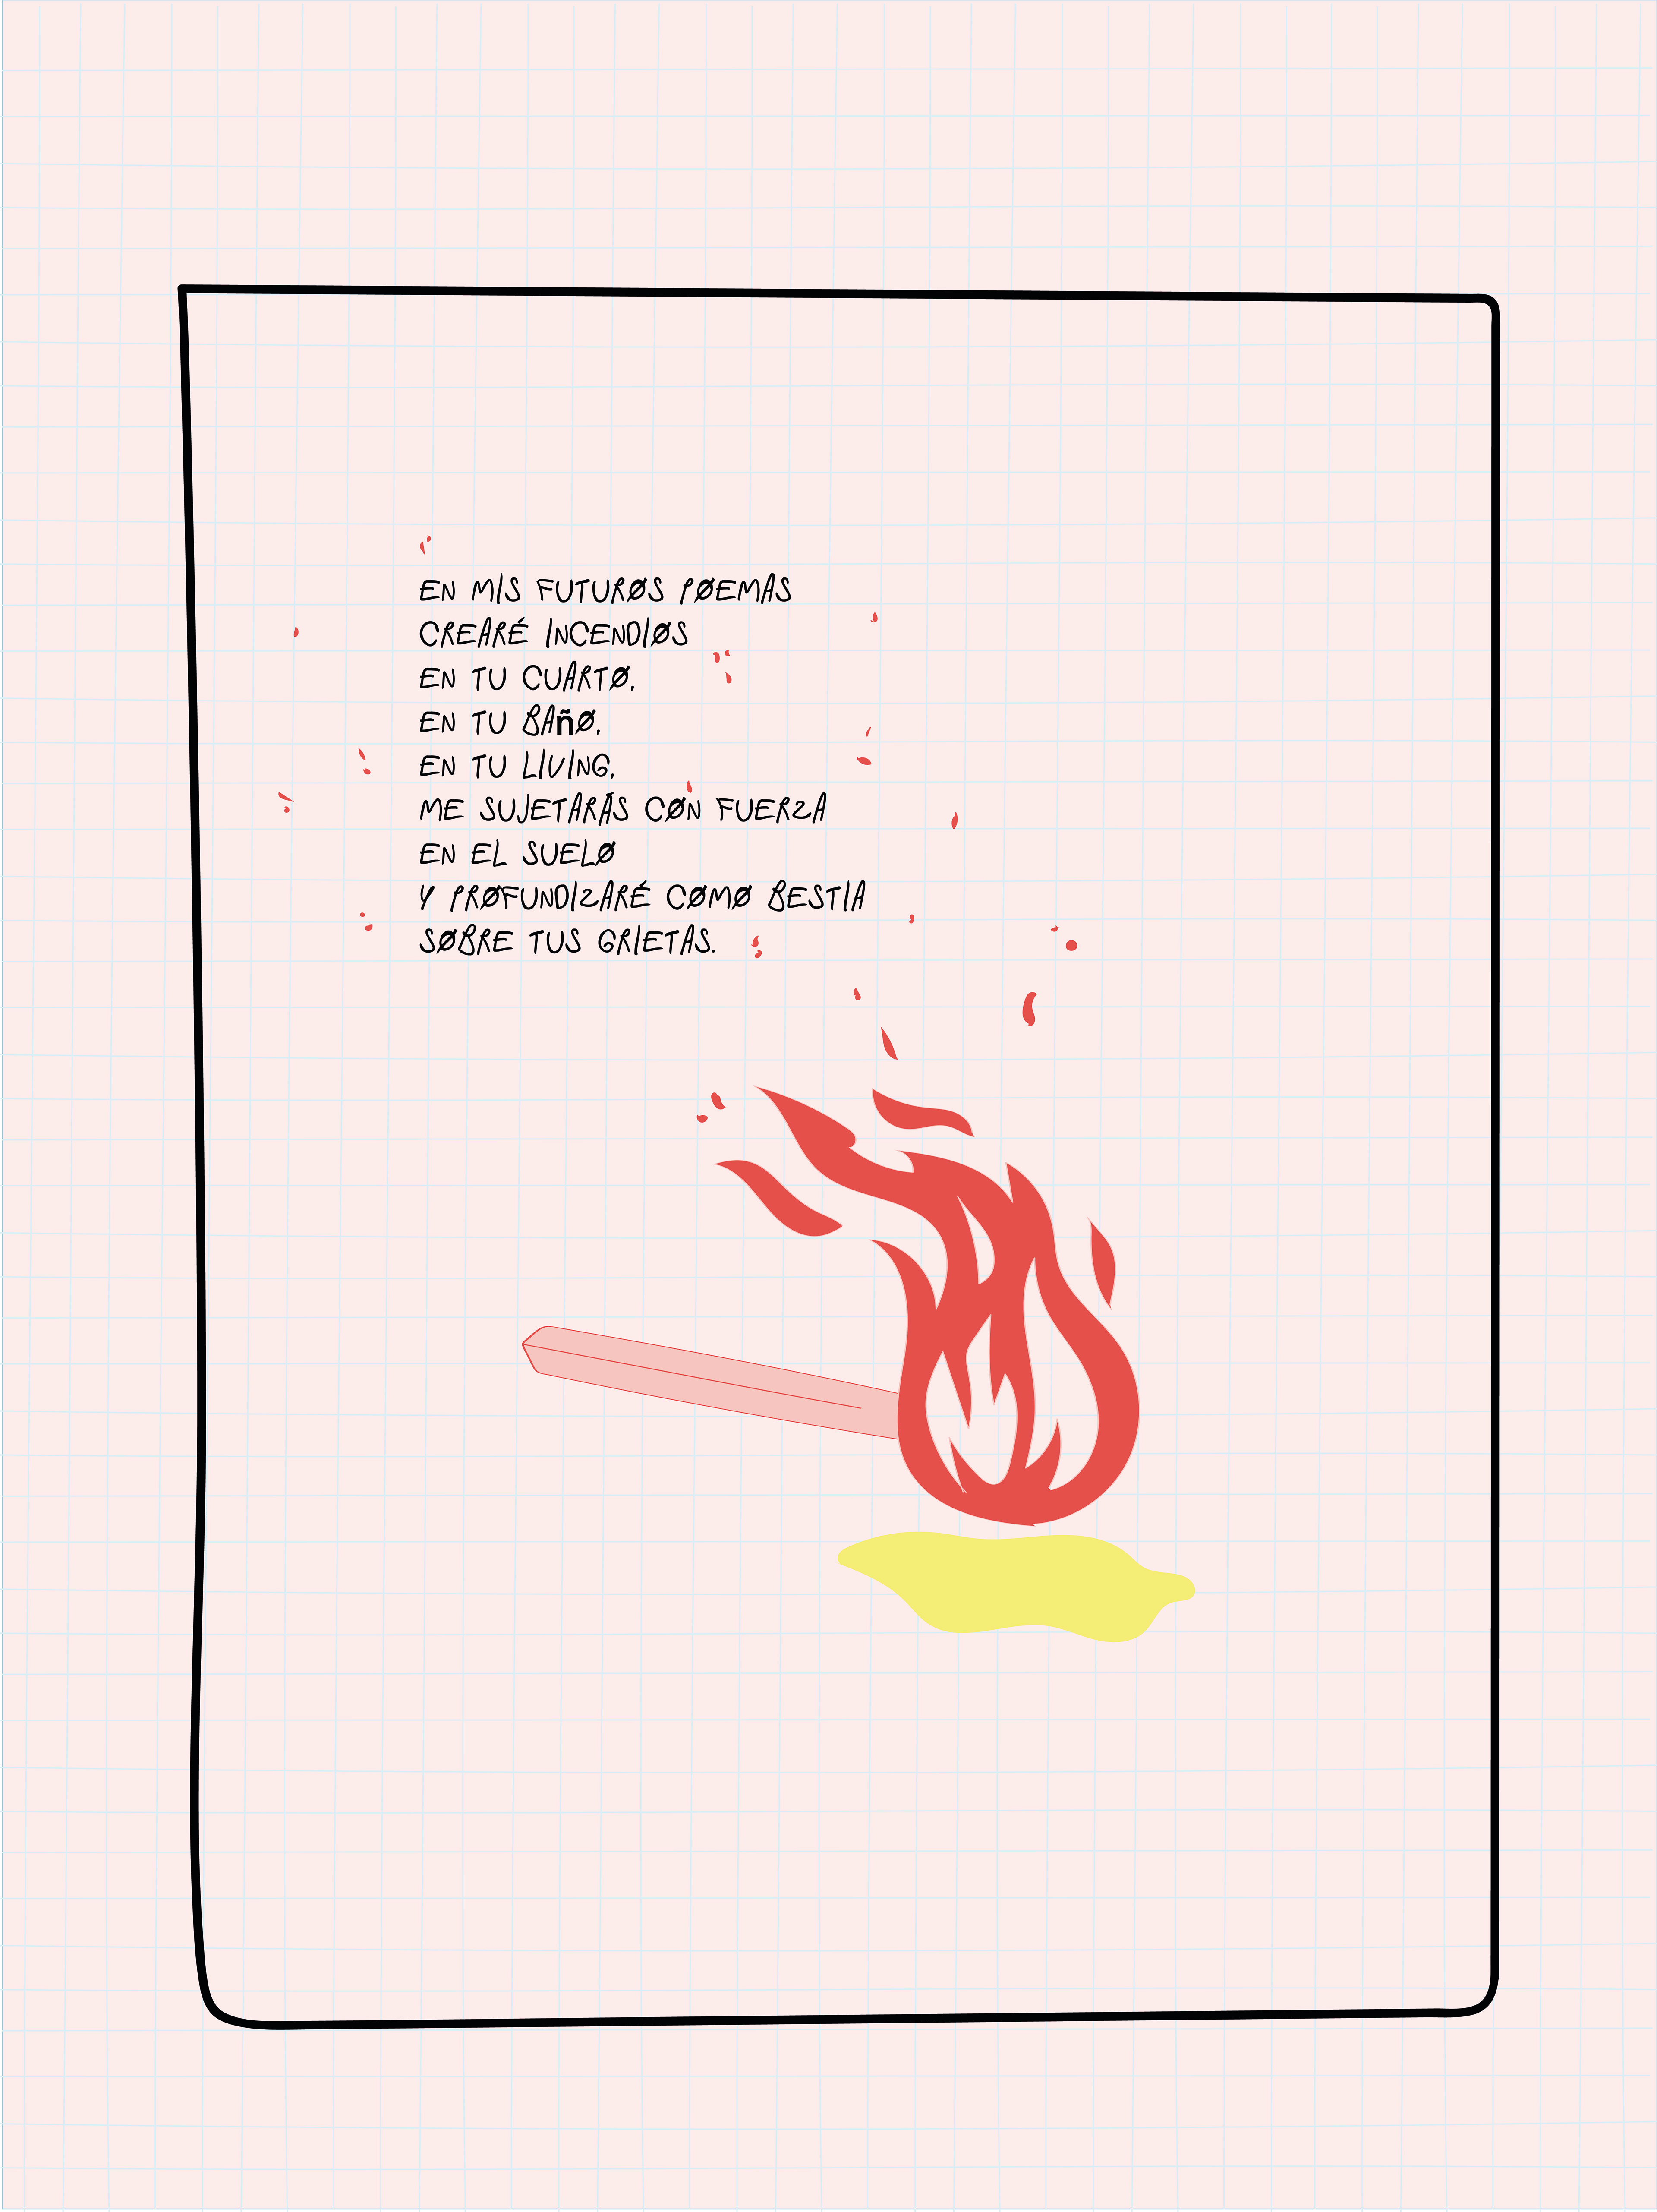 EN MIS FUTURØS PØEMAS
CREARÉ INCENDIØS
EN TU CUARTØ,
EN TU BAñØ,
EN TU LIVING,
ME SUJETARÁS CØN FUERZA
EN EL SUELØ
Y PRØFUNDIZARÉ CØMØ BESTIA
SØBRE TUS GRIETAS.